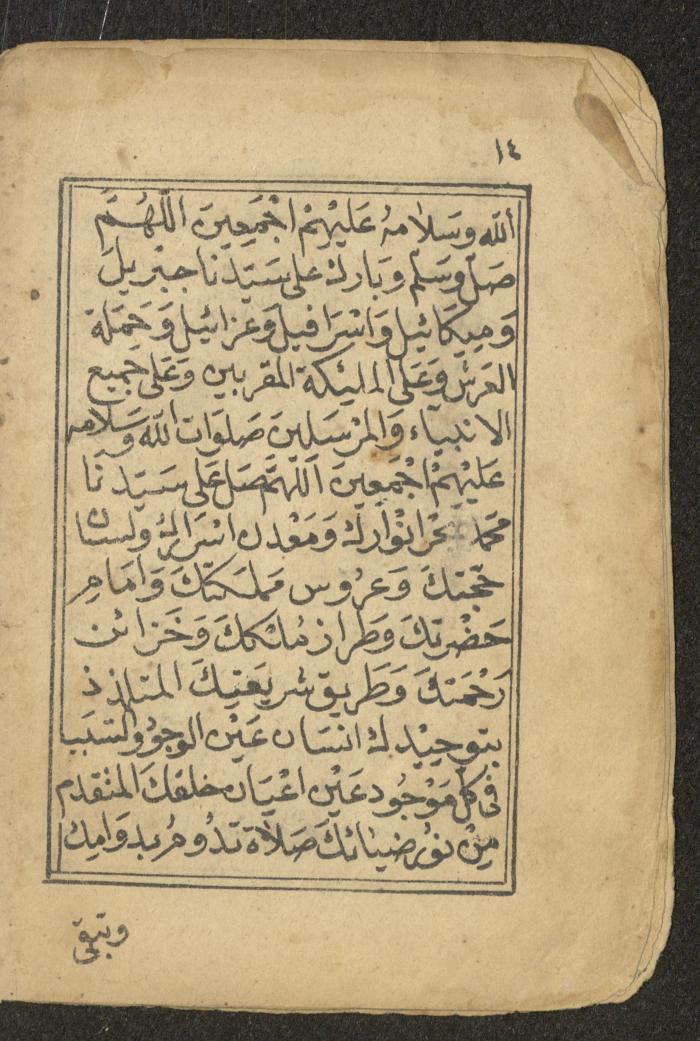 ١٤
اَلله وَسَلَامُهُ عَلَيْهِمْ اَجْمَعِينَ اللّٰهُمَّ
صَلِّ وَسَلِّمْ وَبَارِكْ عَلى سَيِّدِنَا جِبْرِيلَ
وَمِيكَائِيلَ وَاسْرَافِيلَ وَعَزرَائِيلَ وَحَمَلَة
العَرْشِ وَعَلَى المليِكَة المقربين وَعَلى جميع
الانبيَاءِ وَالمرْسَلِينَ صَلوَات الله وَسَلَامه
عَلَيْهِمْ اجْمَعِينَ اَللّٰهُمَّ صَلِ عَلى سَيِّدنَا
محَمَّد بحْرِ انْوَارِكْ وَمَعْدن اسْرَارِكْ ولسان
حجّتِكَ وَعرُوس مَمْلَكَتِكَ وَامَامِ
حَضْرَتِكَ وَطرَاز مُلْكِكَ وَخَزَائن
رَحْمَتكَ وَطَرِيق شَرِيعَتِكَ المتلذذ
بتوحيْدِكْ انسَان عَيْن الوجُودِ وَالسَّبَب
فى كلِّ مَوْجُود عَيْنِ اعْيَان خلقكَ المتقدم
مِنْ نورُ ضيَائكَ صَلَاة تدُومُ بدوَامِكْ
وتبقى